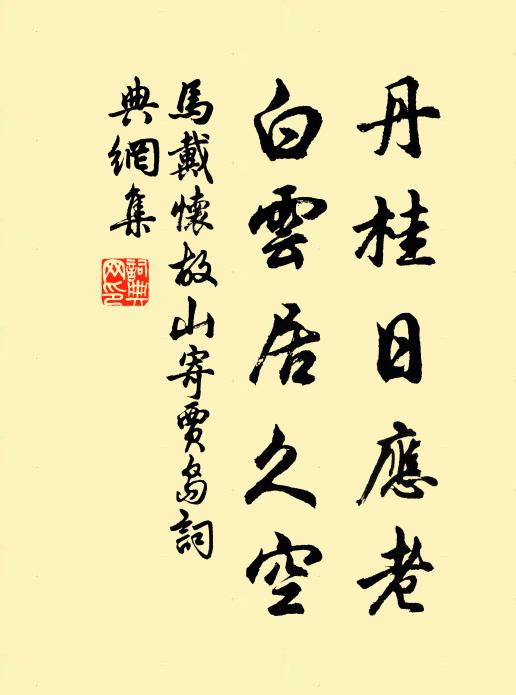 丹桂日應老
白雲居久空
馬戴懷故山寄賈島詞
典網集
詞典
网印